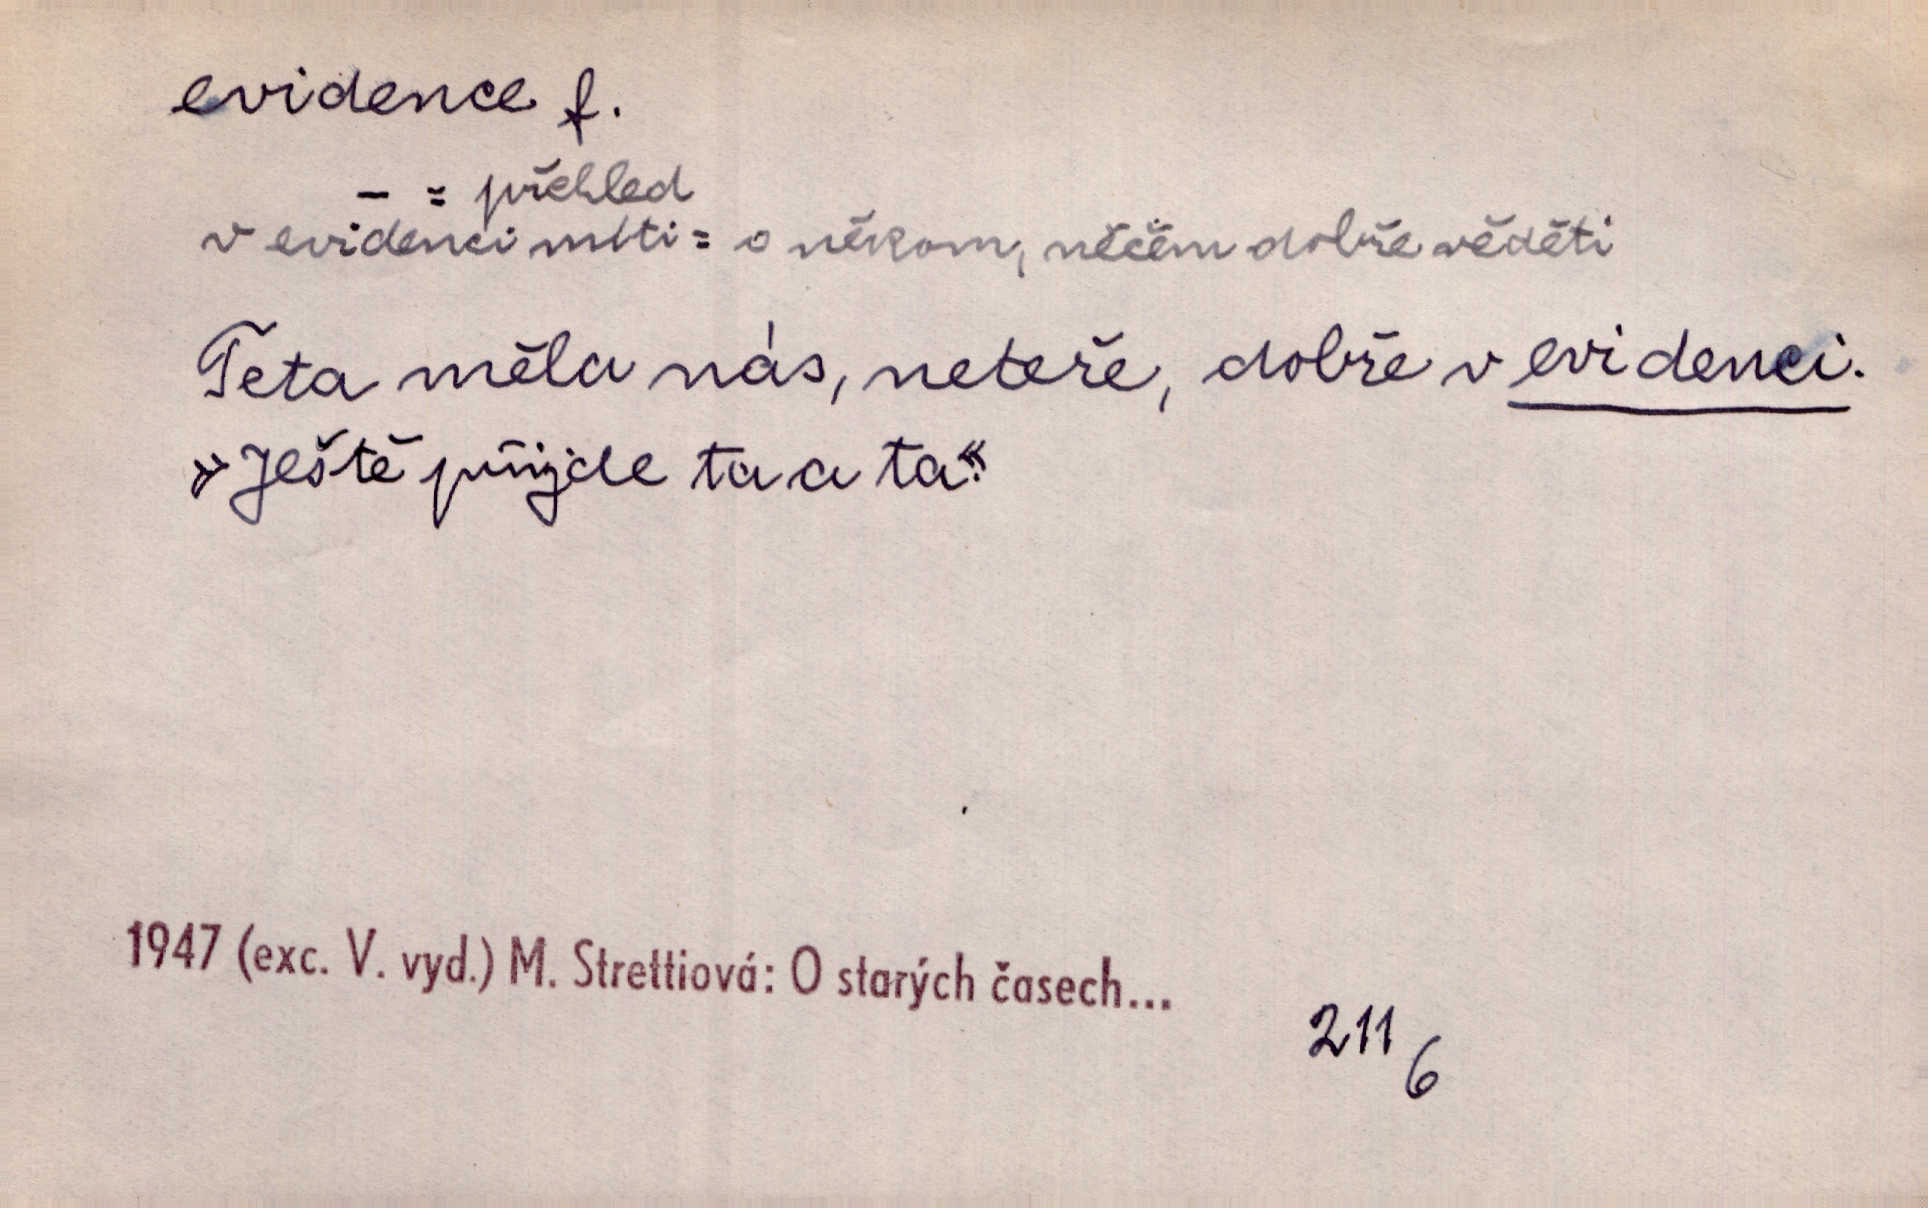 evidence f.
– = přehled
v evidenci míti = o někom, něčem dobře věděti
Teta měla nás, neteře, dobře v evidenci.
»Ještě přijde ta a ta«.
1947 (exc. V. vyd.) M. Strettiová: O starých časech...
211
6